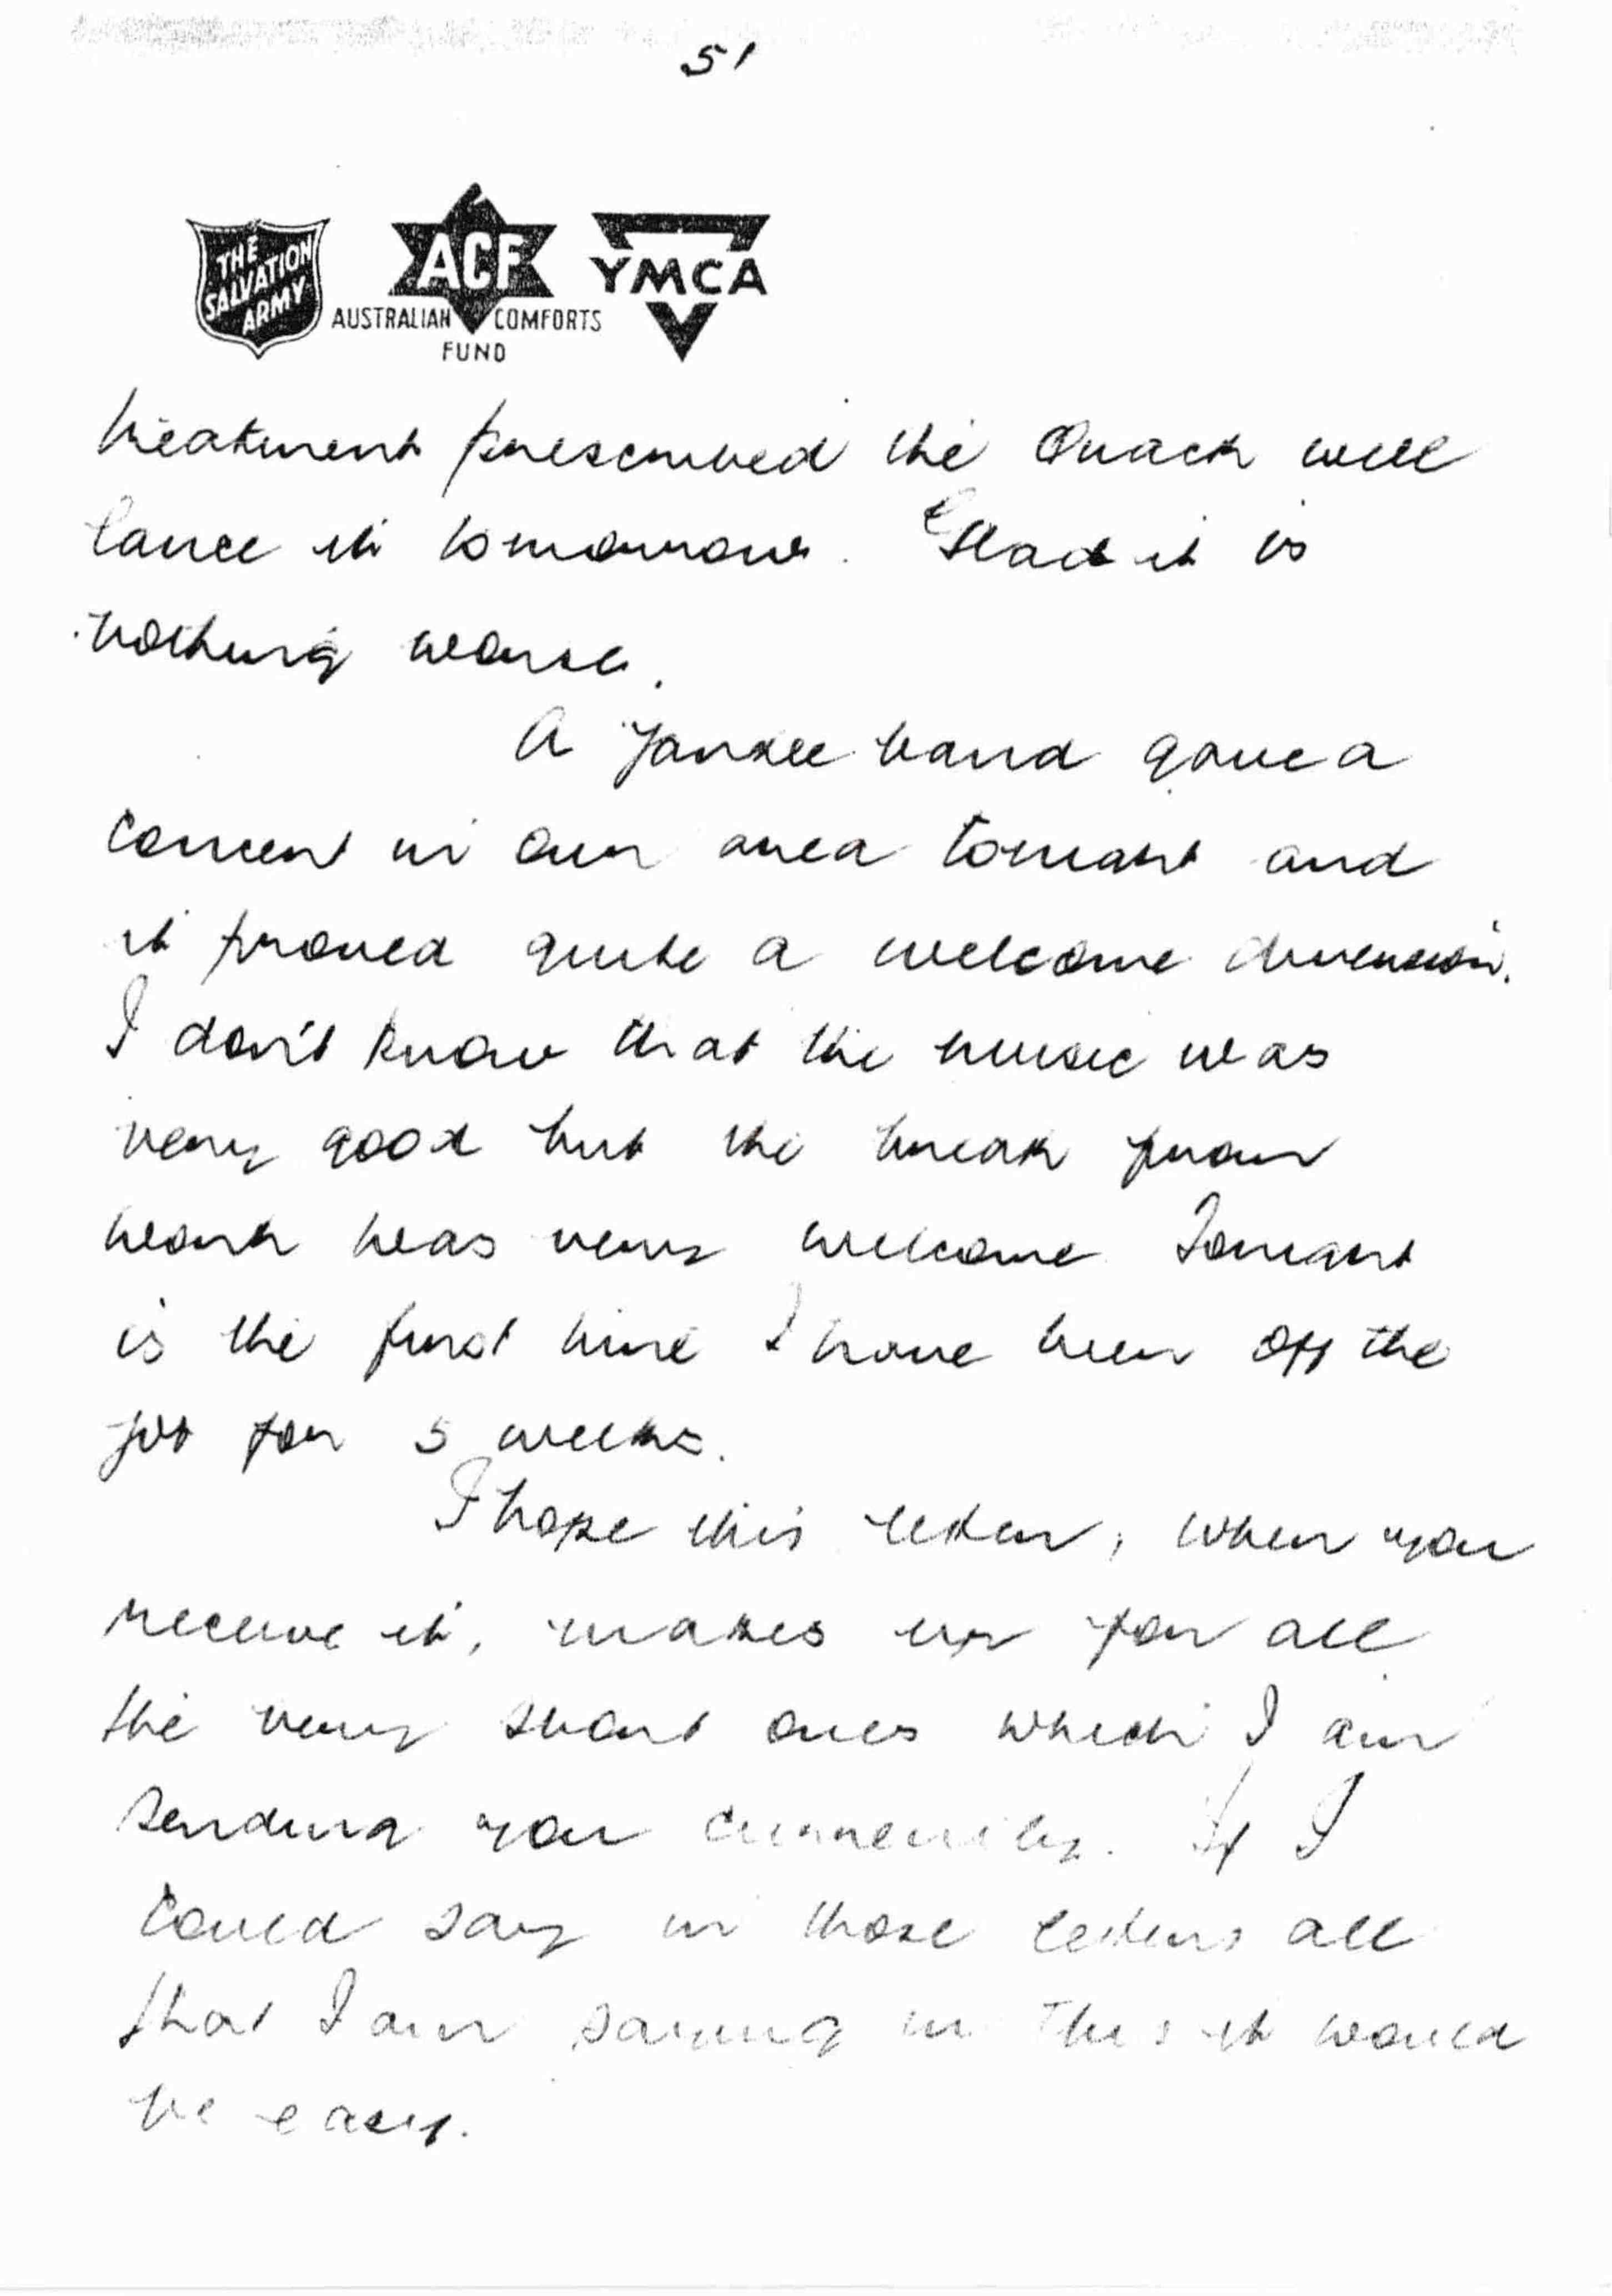 51
THE SALVATION ARMY
ACF
AUSTRALIAN COMFORTS FUND
YMCA
treatment prescribed the Quack will
lance it tomorrow. Glad it is
nothing worse.
A Yankee band gave a
concert in our area tonight and
it proved quite a welcome diversion.
I don't know that the music was
very good but the break from
work was very welcome. Tonight
is the first time I have been off the
job for 5 weeks.
I hope this letter, when you
receive it, makes up for all
the very short ones which I am
sending you currently. If I
could say in those letters all
that I am saying in this it would
be easy.